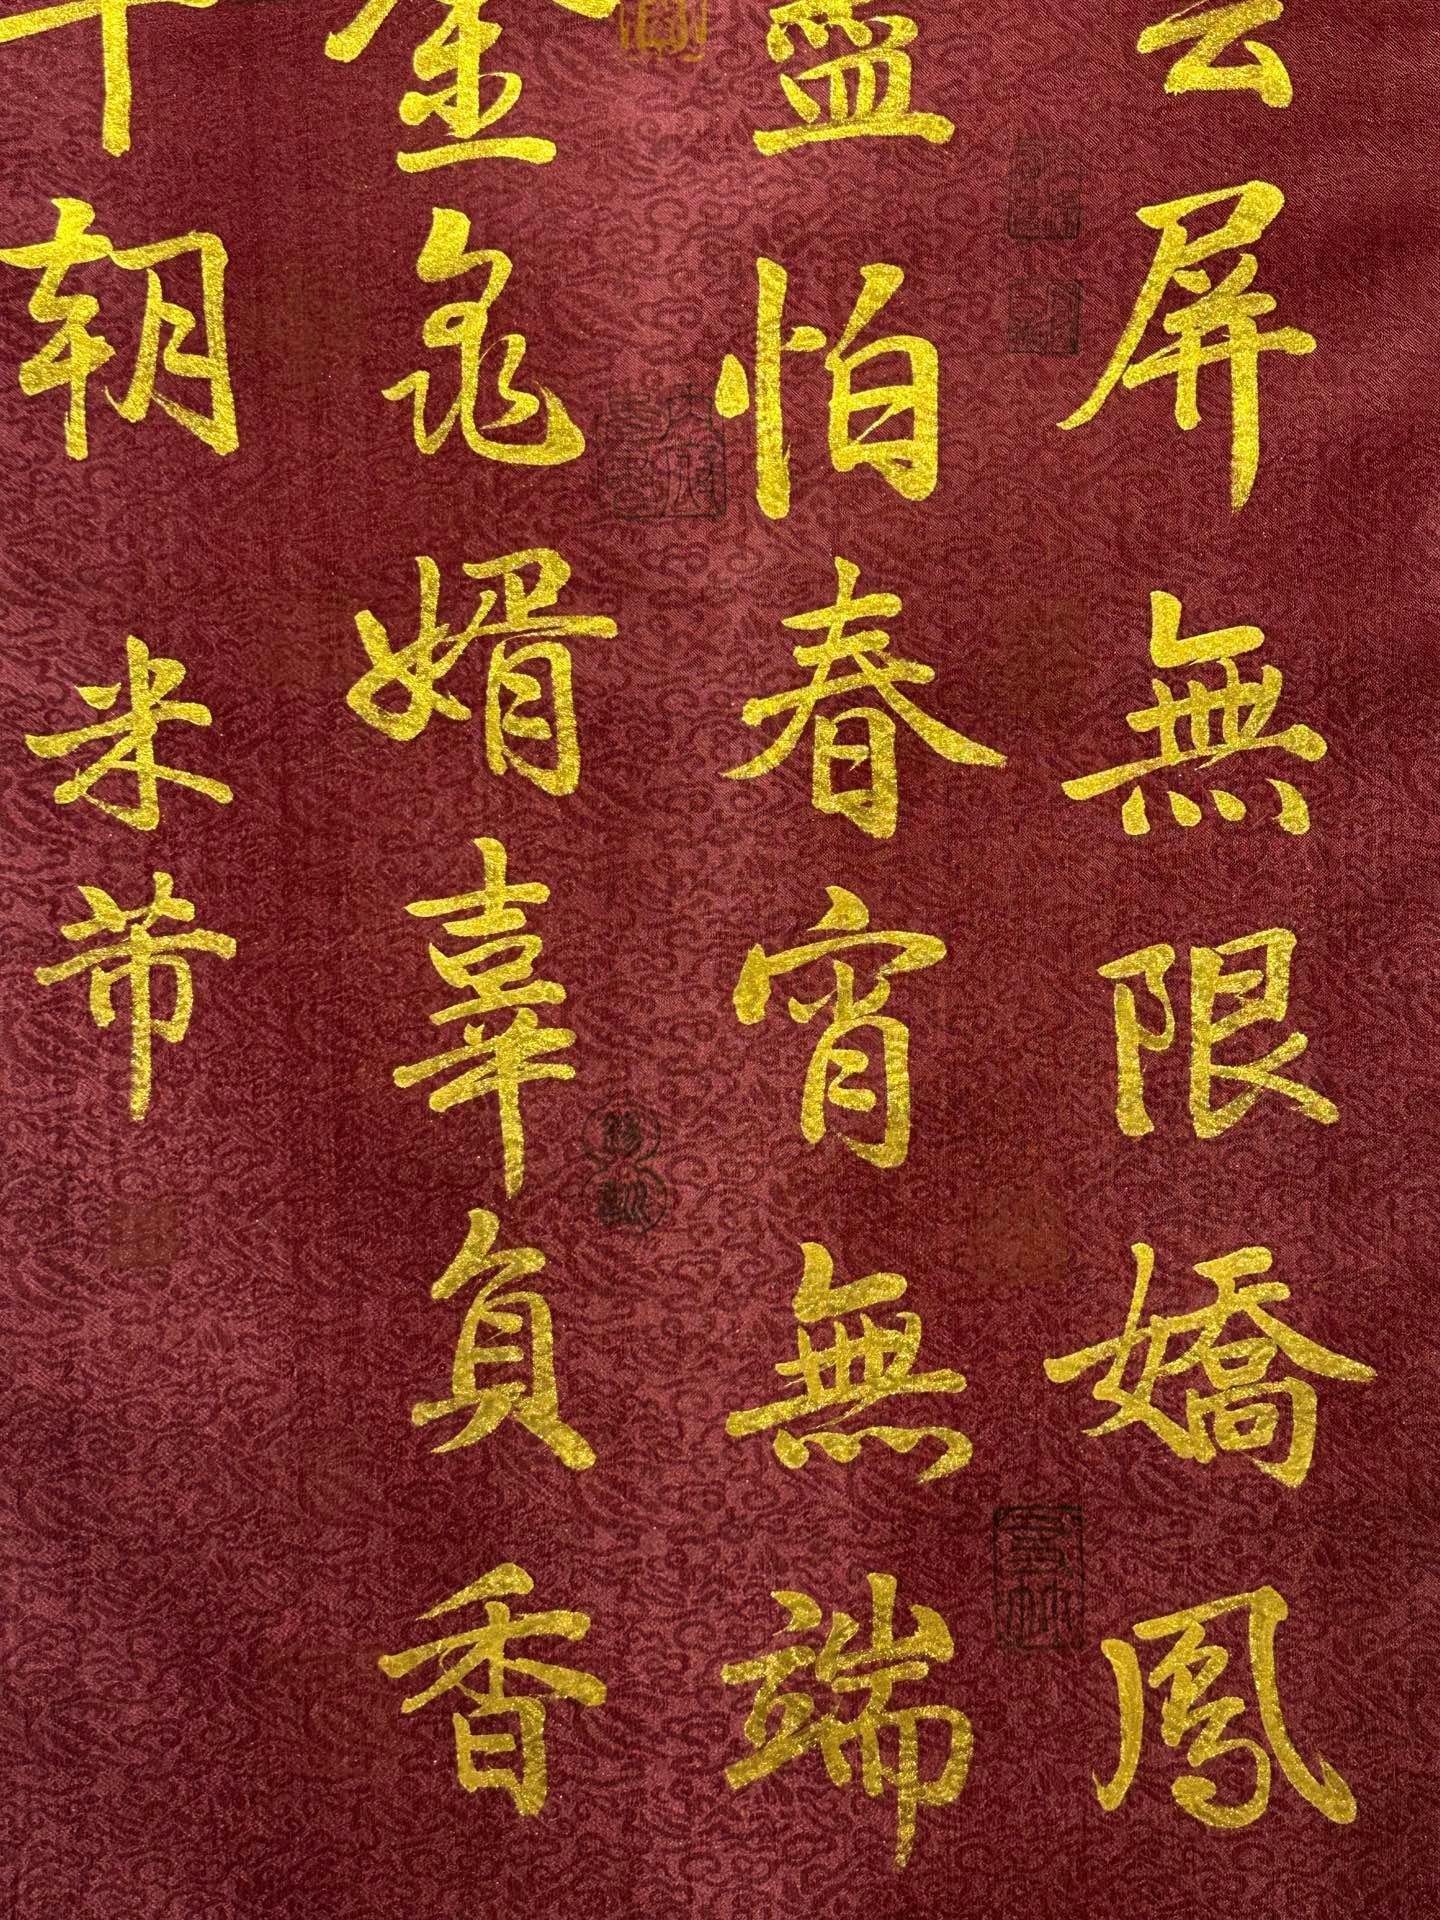 雲屏無限嬌鳳
盡怕春宵無端
金龜婿辜負香
早朝
米芾